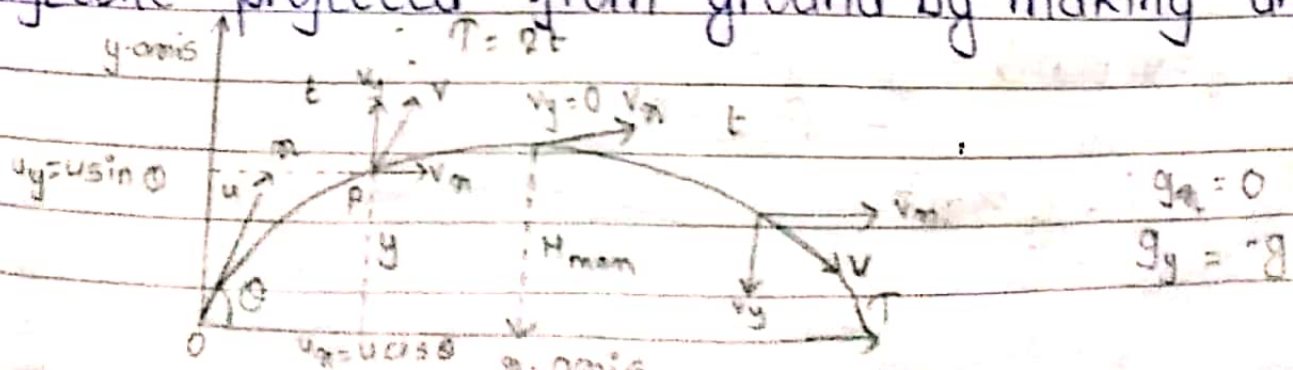 projected from ground by making
y-axis
T = 2t
t vy v
vy=0 vx t
x
uy=usin θ u
P vx
gx = 0
vx
y Hmax
gy = -g
v
vy
θ T
O
ux=ucosθ
x-axis